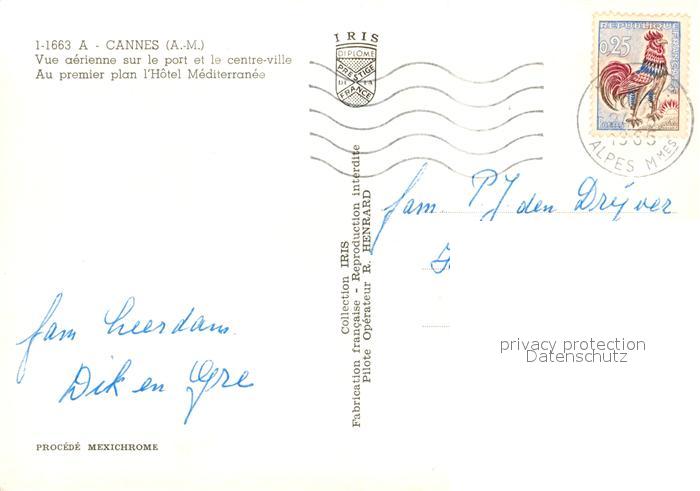 1-1663 A - CANNES (A.-M.)
Vue aérienne sur le port et le centre-ville
Au premier plan l'Hôtel Méditerranée
IRIS
DIPLOME
PRESTIGE
DE LA
FRANCE
REPUBLIQUE FRANÇAISE
0,25
1965
ALPES MMES
Collection IRIS
Fabrication française - Reproduction interdite
Pilote Opérateur R. HENRARD
fam. P J den Drÿver
fam Heerdam.
Dik en Gre
privacy protection
Datenschutz
PROCÉDÉ MEXICHROME